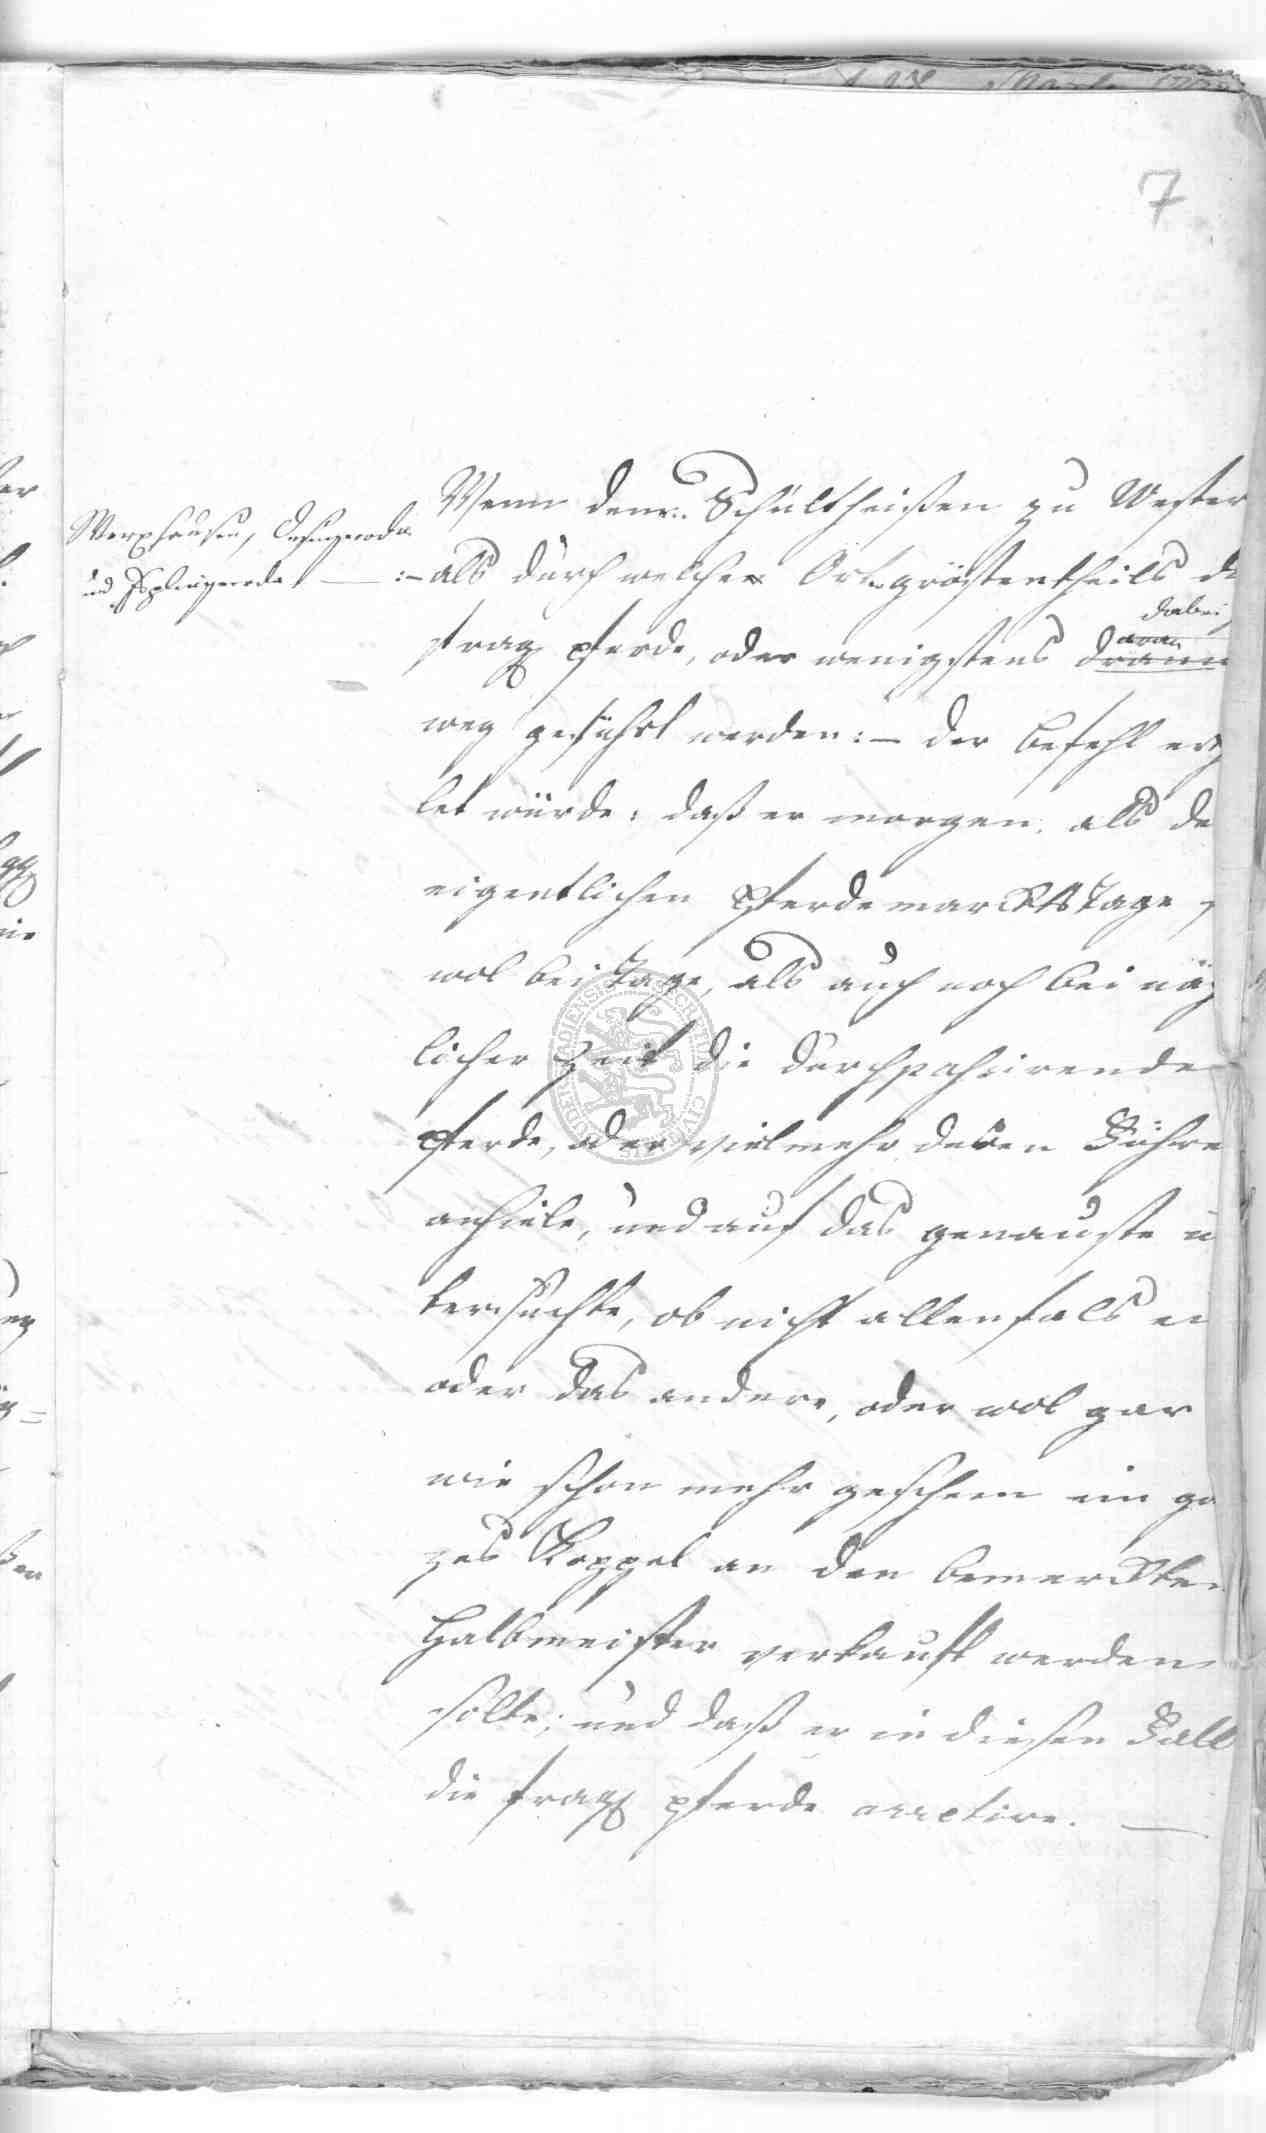 7
Werxhausen, Desingerode
und Esplingerode :-
Wenn dem Schultheißen zu Wester
als durch welche Ort gröstentheils di
frag pferde, oder wenigstens drann
dabei
weg geführt werden :- der befehl er
let würde: daß er morgen, als de
eigentlichen Pferdemarckts Tage s
wol bei Tage, als auch noch bei näch
licher Zeit die durchpassirende
Pferde, oder vielmehr deren Führe
anhiele, und auf das genauste u
tersuchte, ob nicht allenfals ei
oder das andere, oder wol gar
wie schon mehr geschehen ein ga
zes Koppel an den bemerckten
Halbmeister verkauft werden
solte; und daß er in diesen Fall
die frag pferde arretire.